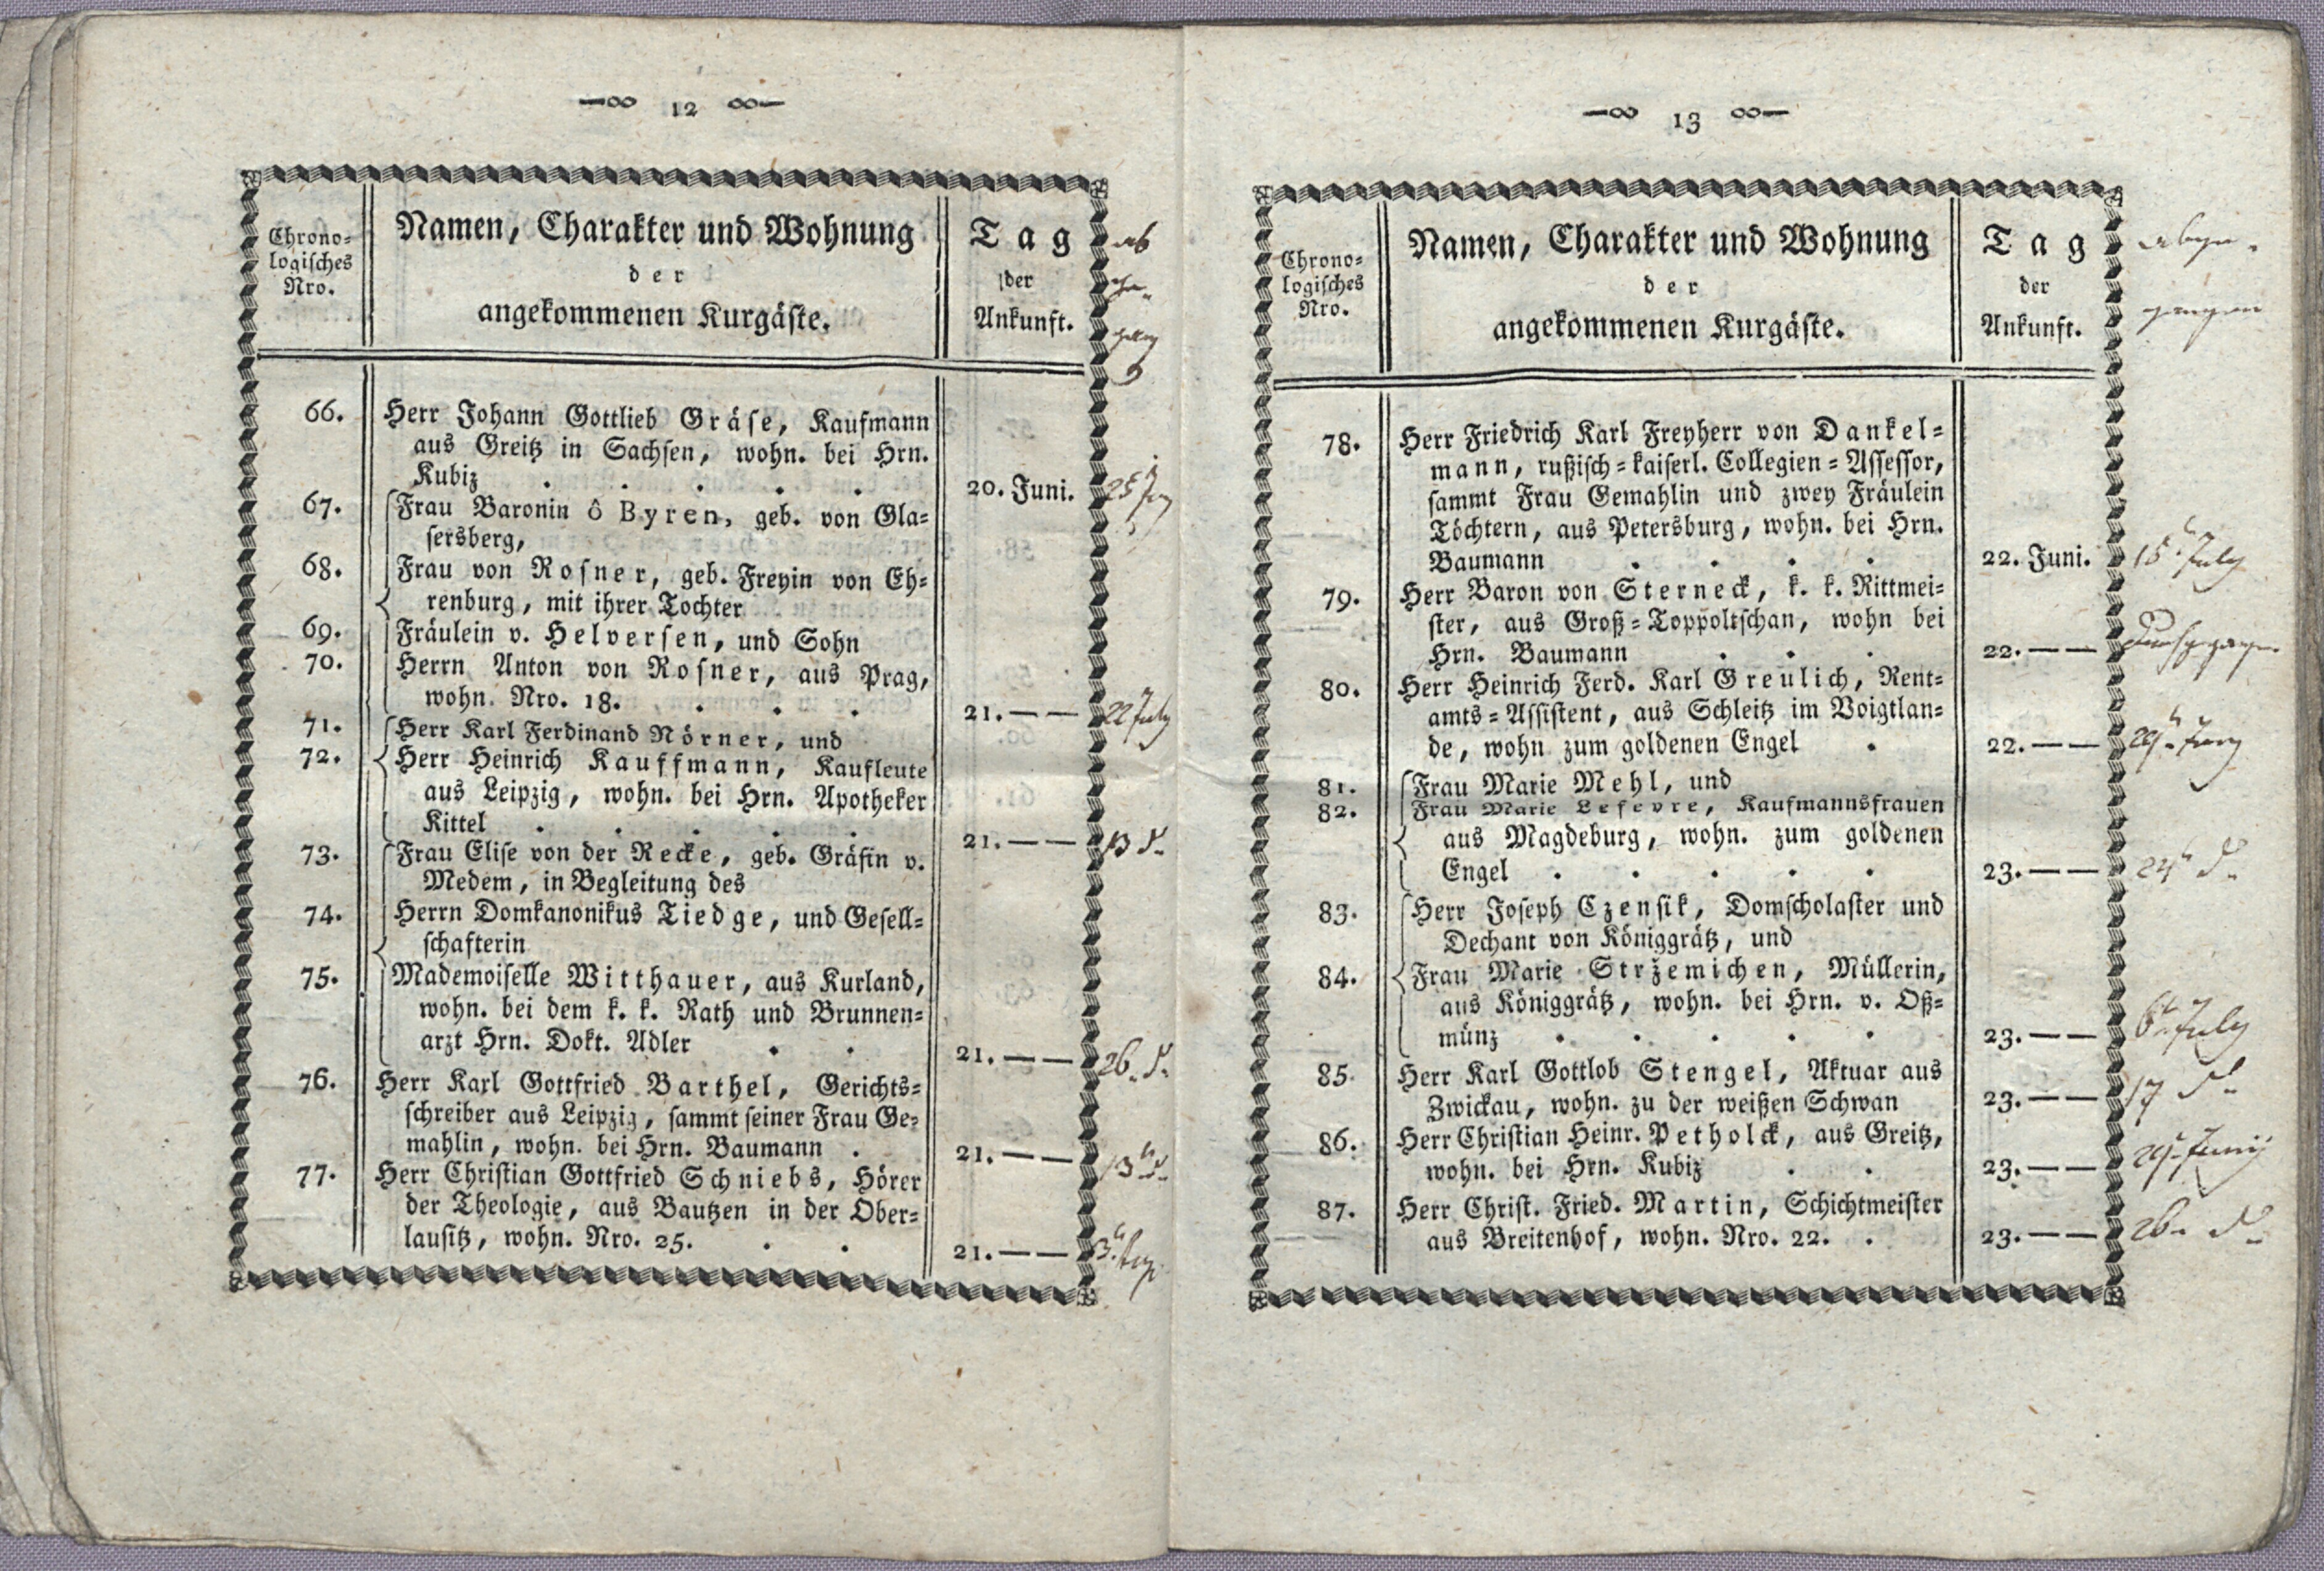 12
Chrono-
logisches
Nro.
Namen, Charakter und Wohnung
der
angekommenen Kurgäste.
Tag
der
Ankunft.
ab
ge-
gang
66. Herr Johann Gottlieb Gräse, Kaufmann
aus Greitz in Sachsen, wohn. bei Hrn.
Kubiz . . . . . 20. Juni. 25
67. Frau Baronin ô Byren, geb. von Gla-
sersberg,
68. Frau von Rosner, geb. Freyin von Eh-
renburg, mit ihrer Tochter
69. Fräulein v. Helversen, und Sohn
70. Herrn Anton von Rosner, aus Prag,
wohn. Nro. 18. . . . 21. — — 22 July
71. Herr Karl Ferdinand Nörner, und
72. Herr Heinrich Kauffmann, Kaufleute
aus Leipzig, wohn. bei Hrn. Apotheker
Kittel . . . . . 21. — — 13 d.
73. Frau Elise von der Recke, geb. Gräfin v.
Medem, in Begleitung des
74. Herrn Domkanonikus Tiedge, und Gesell-
schafterin
75. Mademoiselle Witthauer, aus Kurland,
wohn. bei dem k. k. Rath und Brunnen-
arzt Hrn. Dokt. Adler . . 21. — — 26. d.
76. Herr Karl Gottfried Barthel, Gerichts-
schreiber aus Leipzig, sammt seiner Frau Ge-
mahlin, wohn. bei Hrn. Baumann . 21. — — 13 d.
77. Herr Christian Gottfried Schniebs, Hörer
der Theologie, aus Bautzen in der Ober-
lausitz, wohn. Nro. 25. . . 21. — — 3.
13
Chrono-
logisches
Nro.
Namen, Charakter und Wohnung
der
angekommenen Kurgäste.
Tag
der
Ankunft.
abge-
gangen
78. Herr Friedrich Karl Freyherr von Dankel-
mann, rußisch-kaiserl. Collegien-Assessor,
sammt Frau Gemahlin und zwey Fräulein
Töchtern, aus Petersburg, wohn. bei Hrn.
Baumann . . . . 22. Juni. 15 July
79. Herr Baron von Sterneck, k. k. Rittmei-
ster, aus Groß-Toppoltschan, wohn bei
Hrn. Baumann . . . 22. — —
80. Herr Heinrich Ferd. Karl Greulich, Rent-
amts-Assistent, aus Schleitz im Voigtlan-
de, wohn zum goldenen Engel . 22. — — 29
81. Frau Marie Mehl, und
82. Frau Marie Lefevre, Kaufmannsfrauen
aus Magdeburg, wohn. zum goldenen
Engel . . . . . 23. — — d.
83. Herr Joseph Czensik, Domscholaster und
Dechant von Königgrätz, und
84. Frau Marie Stržemichen, Müllerin,
aus Königgrätz, wohn. bei Hrn. v. Oß-
münz . . . . . 23. — — 6 July
85. Herr Karl Gottlob Stengel, Aktuar aus
Zwickau, wohn. zu der weißen Schwan 23. — — 17 d.
86. Herr Christian Heinr. Petholck, aus Greitz,
wohn. bei Hrn. Kubiz . . 23. — — 29 Junij
87. Herr Christ. Fried. Martin, Schichtmeister
aus Breitenhof, wohn. Nro. 22. . 23. — — 26. d.